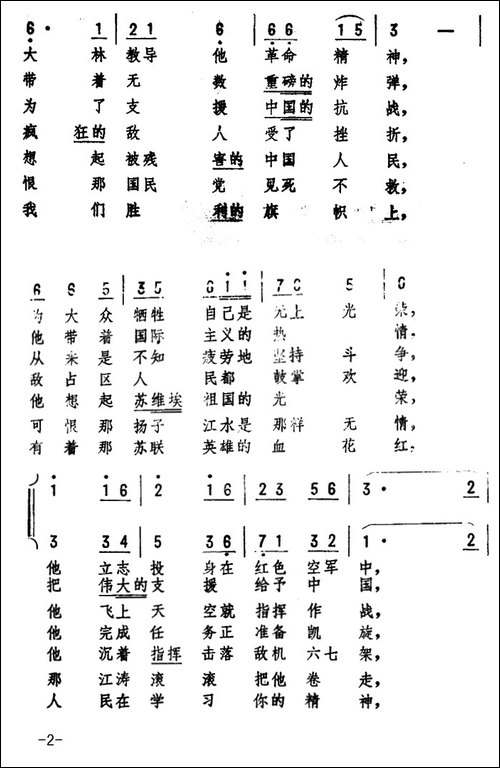 6· 1 21 6 66 15 3 —
大林教导他革命精神,
带着无数重磅的炸弹,
为了支援中国的抗战,
疯狂的敌人受了挫折,
想起被残害的中国人民,
恨那国民党见死不救,
我们胜利的旗帜上,
6 6 5 35 6 i i 76 5 6
为大众牺牲自己是无上光荣,
他带着国际主义的热情.
从来是不知疲劳地坚持斗争,
敌占区人民都鼓掌欢迎,
他想起苏维埃祖国的光荣,
可恨那扬子江水是那样无情,
有着那苏联英雄的血花红.
i i6 2 i6 23 56 3· 2
3 34 5 36 71 32 1· 2
他立志投身在红色空军中,
把伟大的支援给予中国,
他飞上天空就指挥作战,
他完成任务正准备凯旋,
他沉着指挥击落敌机六七架,
那江涛滚滚把他卷走,
人民在学习你的精神,
-2-